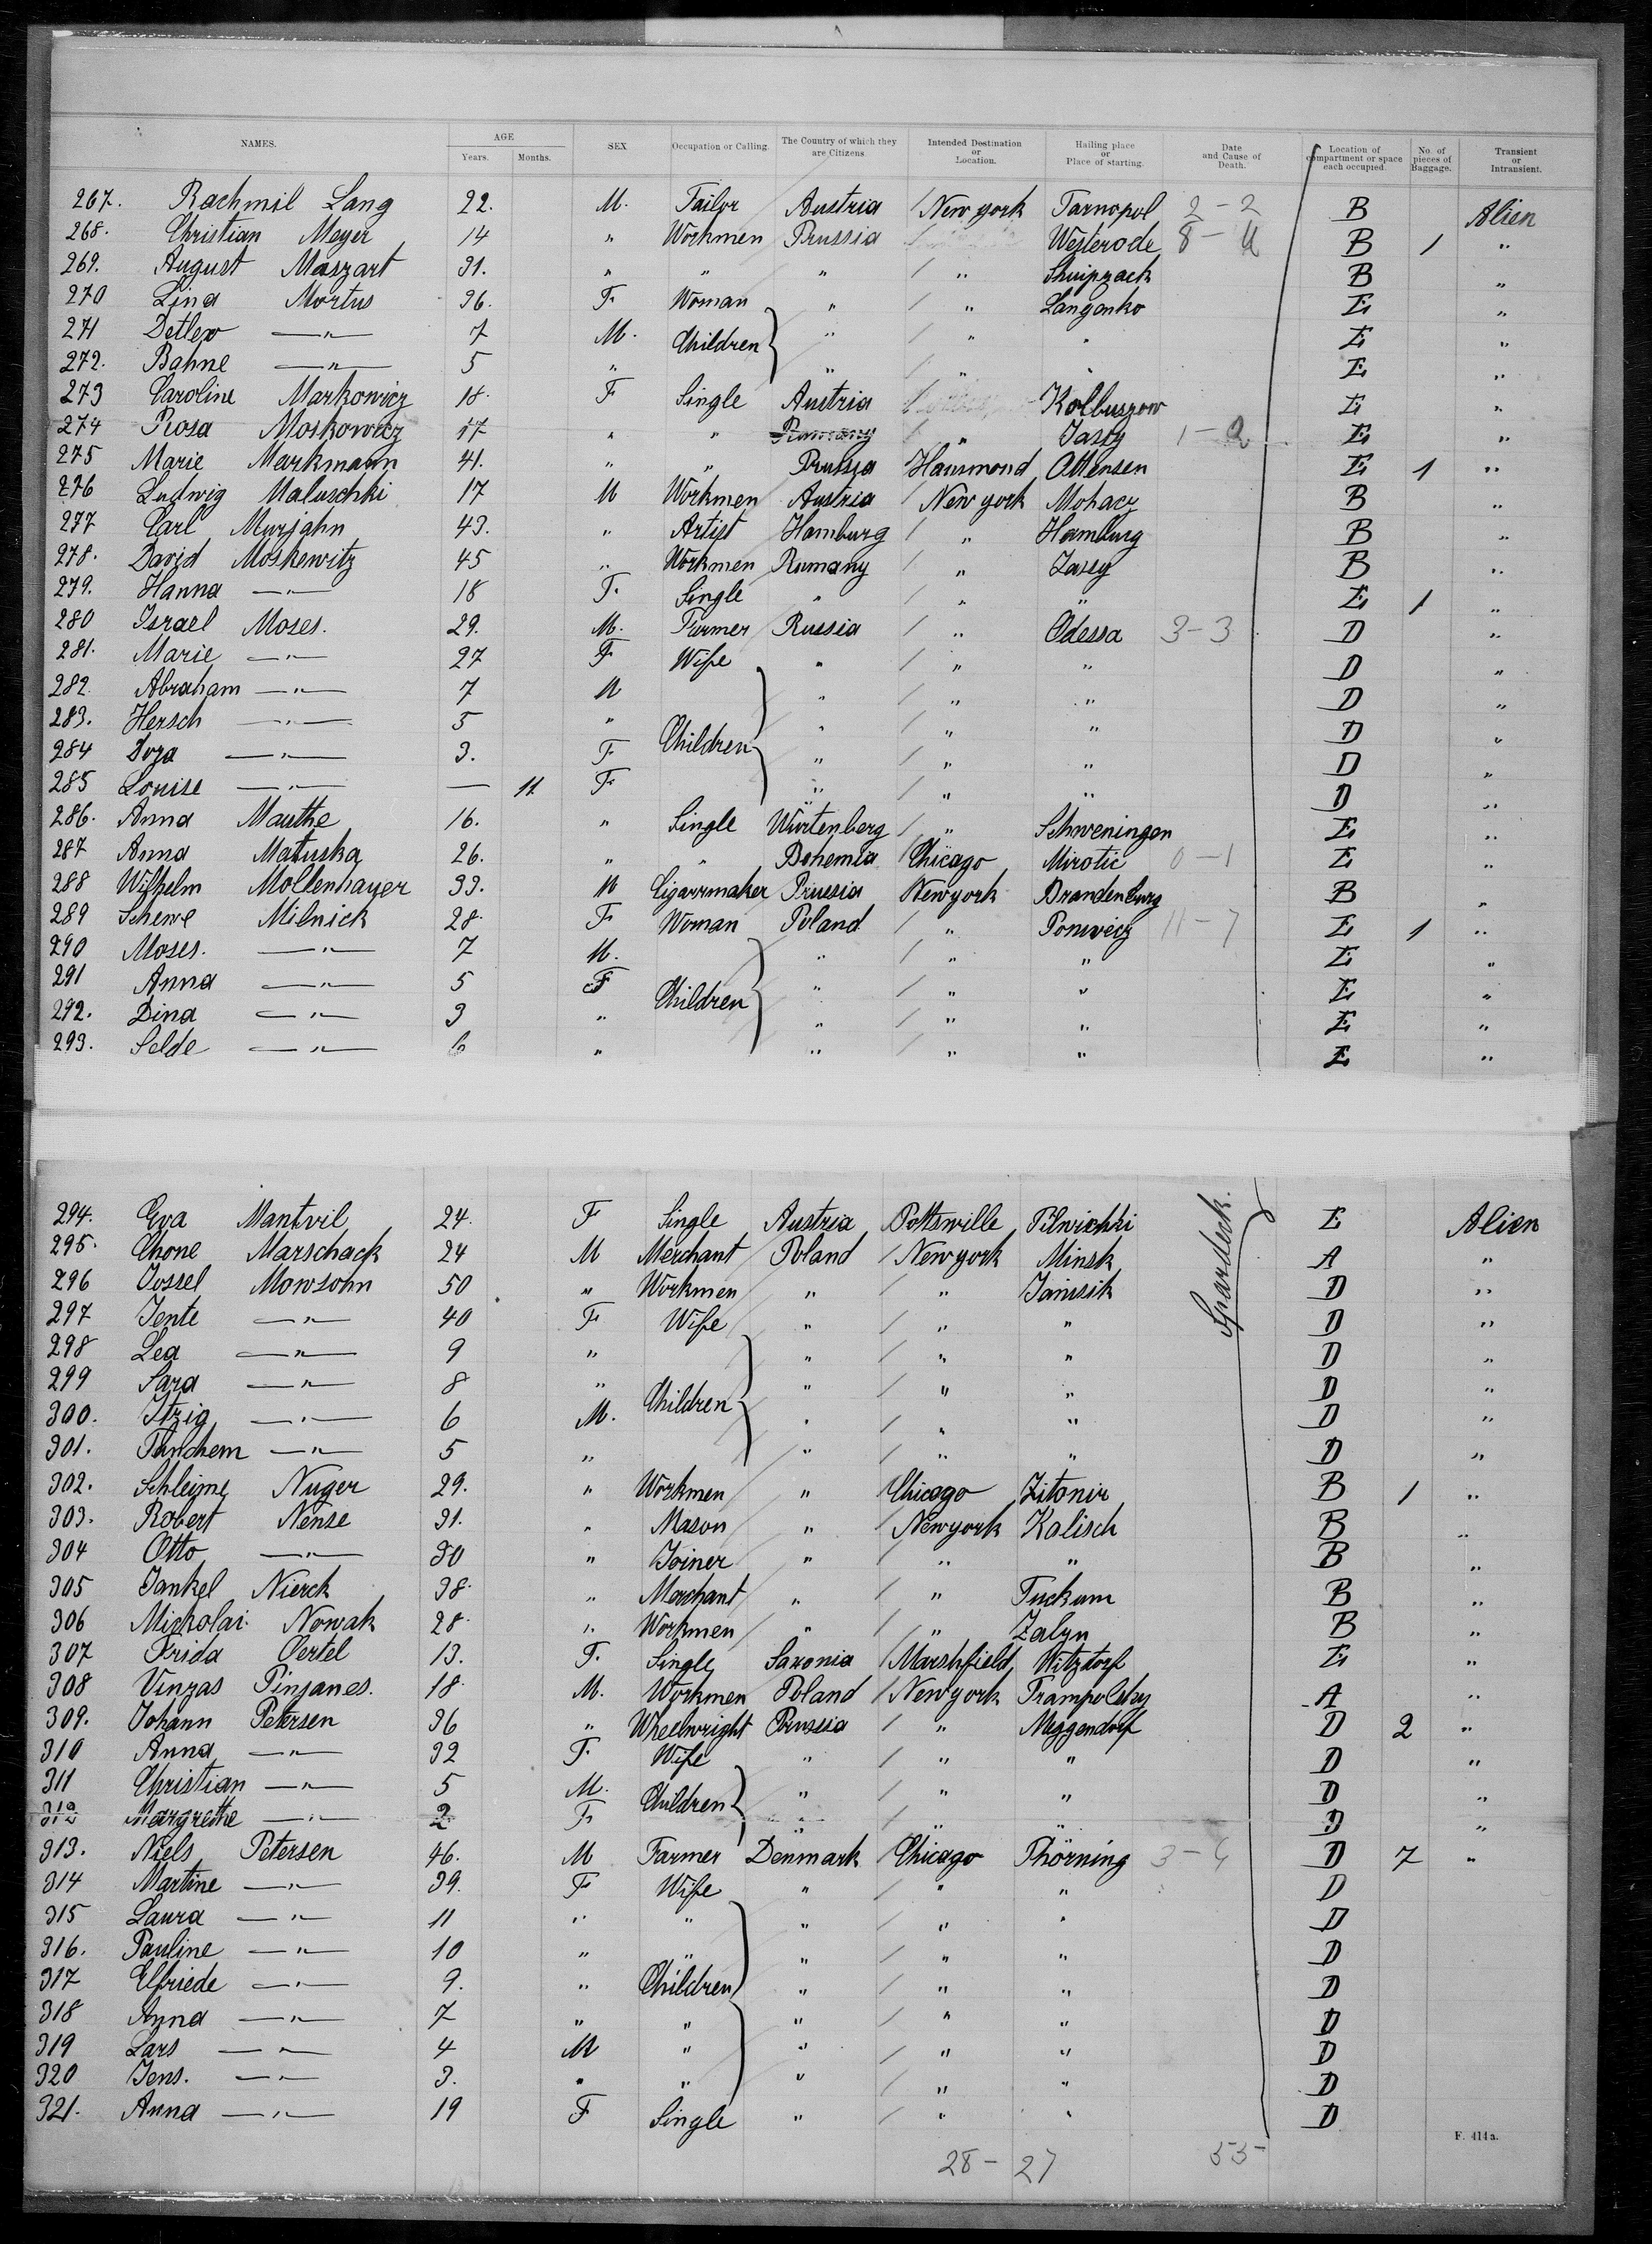 NAMES. AGE Years. Months. SEX Occupation or Calling. The Country of which they are Citizens. Intended Destination or Location. Hailing place or Place of starting. Date and Cause of Death. Location of compartment or space each occupied. No. of pieces of Baggage. Transient or Intransient.
267. Rachmil Lang 22. M. Tailor Austria / New york Tarnopol 2-2 B Alien
268. Christian Meyer 14 " Workmen Prussia / Westerode 8- B 1 "
269. August Maszart 31. " " " / " B "
270 Lina Mortus 36. F Woman " / " Langenko E "
271 Detlev —"— 7 M. Children " / " " E "
272. Bahne —"— 5 " " / " " E "
273 Caroline Markowicz 18. F Single Austria / Kolbuszow E "
274 Rosa Moskowicz 17 " " Rumany / " Jassy 1-2 E "
275 Marie Markmann 41. " " Prussia Hammond Ottensen E 1 "
276 Ludwig Maluschki 17 M Workmen Austria / New york Mohacz B "
277 Carl Murjahn 43. " Artist Hamburg / " Hamburg B "
278. David Moskewitz 45 " Workmen Rumany / " Jassy B "
279. Hanna —"— 18 F. Single " / " " E 1 "
280 Israel Moses. 29. M. Farmer Russia / " Odessa 3-3 D "
281. Marie —"— 27 F Wife " / " " D "
282. Abraham —"— 7 M " / " " D "
283. Hersch —"— 5 " Children " / " " D "
284 Dora —"— 3. F " / " " D "
285 Louise —"— — 11 F " / " " D "
286. Anna Mauthe 16. " Single Würtenberg / " Schweningen E "
287 Anna Matuska 26. " " Bohemia / Chicago Mirotic 0-1 E "
288 Wilhelm Mollenhauer 33. M Cigarrmaker Prussia Newyork Brandenburg B "
289 Schewe Milnick 28. F Woman Poland / " Poniviecz 11-7 E 1 "
290 Moses. —"— 7 M. " / " " E "
291 Anna —"— 5 F Children " / " " E "
292. Dina —"— 3 " " / " " E "
293. Selde —"— 6 " " / " " E "
294. Eva Mantvil 24. F Single Austria Pottsville Pilwichki Spardeck. E Alien
295. Chone Marschack 24 M Merchant Poland / Newyork Minsk A "
296 Jossel Mowsohn 50 " Workmen " / " Janisik D "
297 Jente —"— 40 F Wife " / " " D "
298 Lea —"— 9 " " / " " D "
299 Sara —"— 8 " Children " / " " D "
300. Itzig —"— 6 M. " / " " D "
301. Tanchem —"— 5 " " / " " D "
302. Schleime Nuger 29. " Workmen " Chicago Zitonir B 1 "
303. Robert Nense 31. " Mason " / Newyork Kalisch B "
304 Otto —"— 30 " Joiner " / " " B "
305 Jankel Nierck 38. " Merchant " / " Tuckum B "
306 Mickolai Nowak 28. " Workmen " / " Zalyn B "
307 Frida Oertel 13. F. Single Saxonia / Marshfield Witzdorf E "
308 Vinzas Pinjanes. 18. M. Workmen Poland / Newyork Trampolsky A "
309. Johann Petersen 36 " Wheelwright Prussia / " Meggendorf D 2 "
310 Anna —"— 32 F. Wife " / " " D "
311 Christian —"— 5 M. Children " / " " D "
312 Margrethe —"— 2 F. " / " " D "
313. Niels Petersen 46. M Farmer Denmark / Chicago Thörning 3-6 D 7 "
314 Martine —"— 39. F Wife " / " " D
315 Laura —"— 11 " " " / " " D
316. Pauline —"— 10 " " " / " " D
317 Elfriede —"— 9. " Children " / " " D
318 Anna —"— 7 " " " / " " D
319 Lars —"— 4 M " " / " " D
320 Jens. —"— 3. " " " / " " D
321. Anna —"— 19 F Single " / " " D
F. 414a.
28 - 27 55